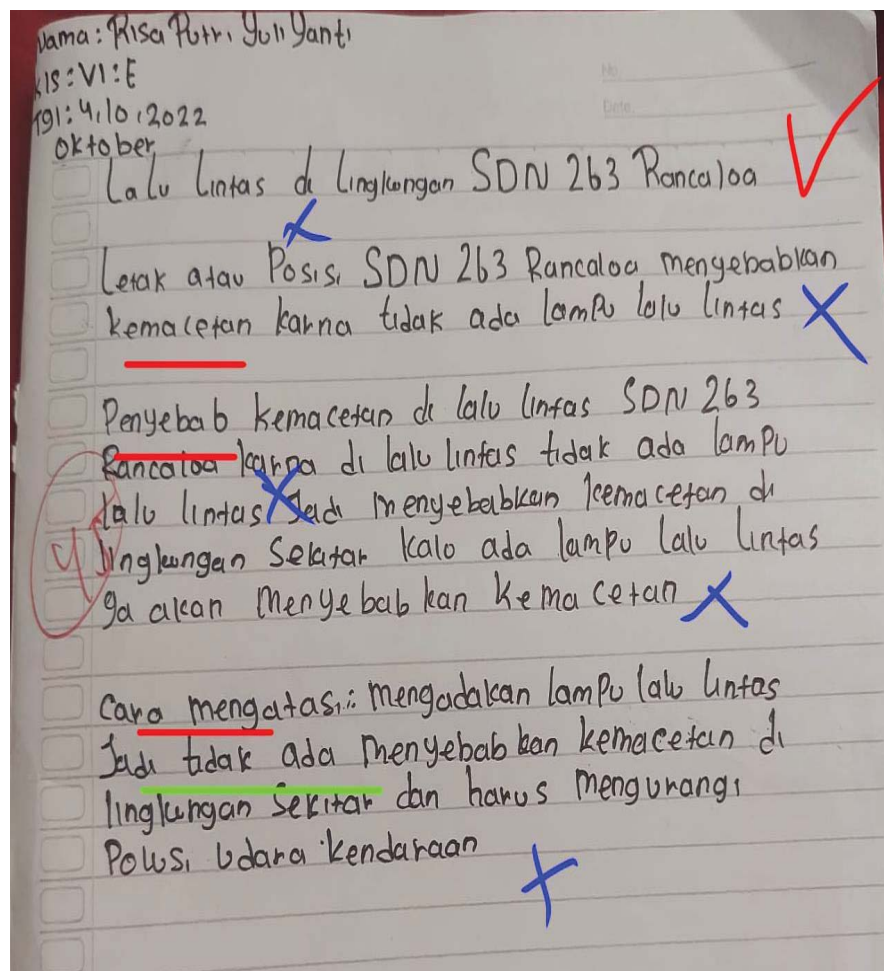 Nama: Risa Putri Yuli Yanti
Kls: VI: E
Tgl: 4, 10, 2022
Oktober
No.
Date.
Lalu lintas di lingkungan SDN 263 Rancaloa
Letak atau Posisi SDN 263 Rancaloa menyebabkan
kemacetan karna tidak ada lampu lalu lintas
Penyebab kemacetan di lalu lintas SDN 263
Rancaloa karna di lalu lintas tidak ada lampu
lalu lintas Jadi menyebabkan kemacetan di
lingkungan Sekitar kalo ada lampu lalu lintas
ga akan menyebabkan kemacetan
Cara mengatasi: mengadakan lampu lalu lintas
Jadi tidak ada menyebabkan kemacetan di
lingkungan Sekitar dan harus mengurangi
Polusi Udara kendaraan